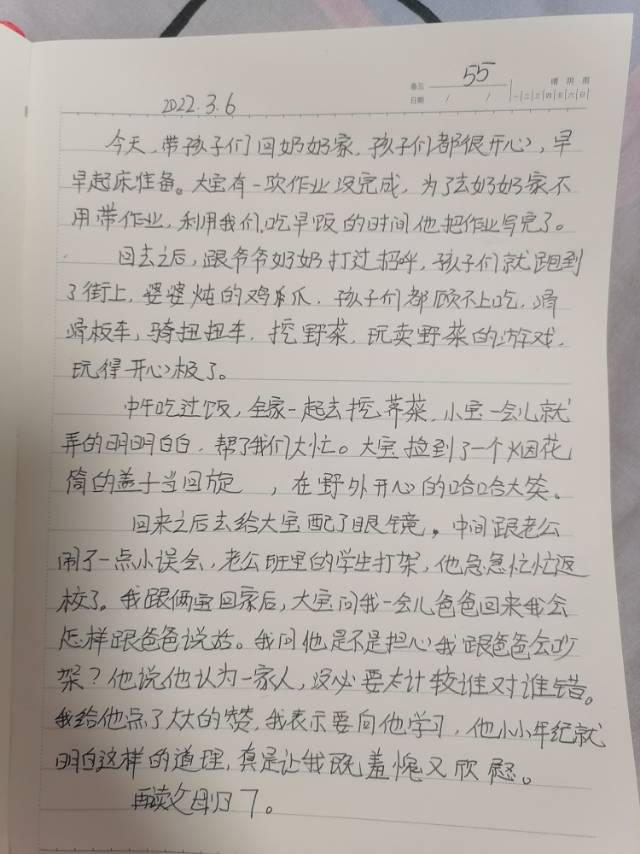 卷五 55 晴 阴 雨
日期 / / 一 二 三 四 五 六 日
2022.3.6
今天,带孩子们回奶奶家,孩子们都很开心,早
早起床准备。大宝有一项作业没完成,为了去奶奶家不
用带作业,利用我们吃早饭的时间他把作业写完了。
回去之后,跟爷爷奶奶打过招呼,孩子们就跑到
了街上,婆婆炖的鸡爪,孩子们都顾不上吃,滑
滑板车,骑扭扭车,挖野菜,玩卖野菜的游戏,
玩得开心极了。
中午吃过饭,全家一起去挖荠菜,小宝一会儿就
弄的明明白白,帮了我们大忙。大宝捡到了一个烟花
筒的盖子当回旋 ,在野外开心的哈哈大笑。
回来之后去给大宝配了眼镜。中间跟老公
闹了一点小误会,老公班里的学生打架,他急急忙忙返
校了。我跟俩宝回家后,大宝问我一会儿爸爸回来我会
怎样跟爸爸说话。我问他是不是担心我跟爸爸会吵
架?他说他认为一家人,没必要太计较谁对谁错。
我给他点了大大的赞,我表示要向他学习,他小小年纪就
明白这样的道理,真是让我既羞愧又欣慰。
再读父母归7。